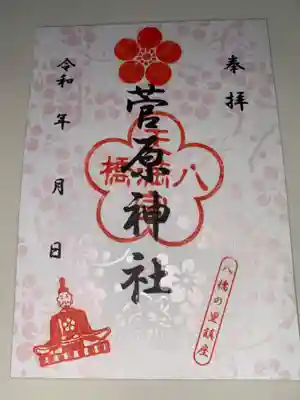 奉拝
菅原神社
令和 年 月 日
八橋の里鎮座